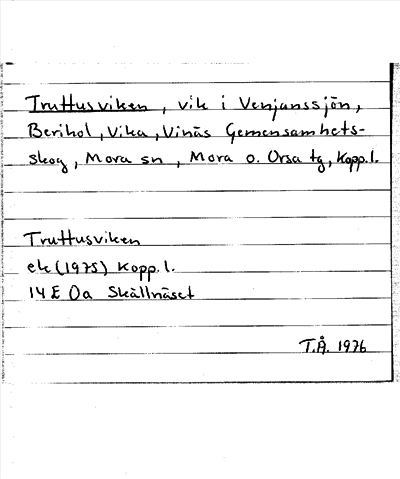 Truttusviken, vik i Venjanssjön,
Berihol, Vika, Vinäs Gemensamhets-
skog, Mora sn, Mora o. Orsa tg, Kopp.l.
Truttusviken
ek (1975) Kopp.l.
14E 0a Skällnäset
T.Å. 1976